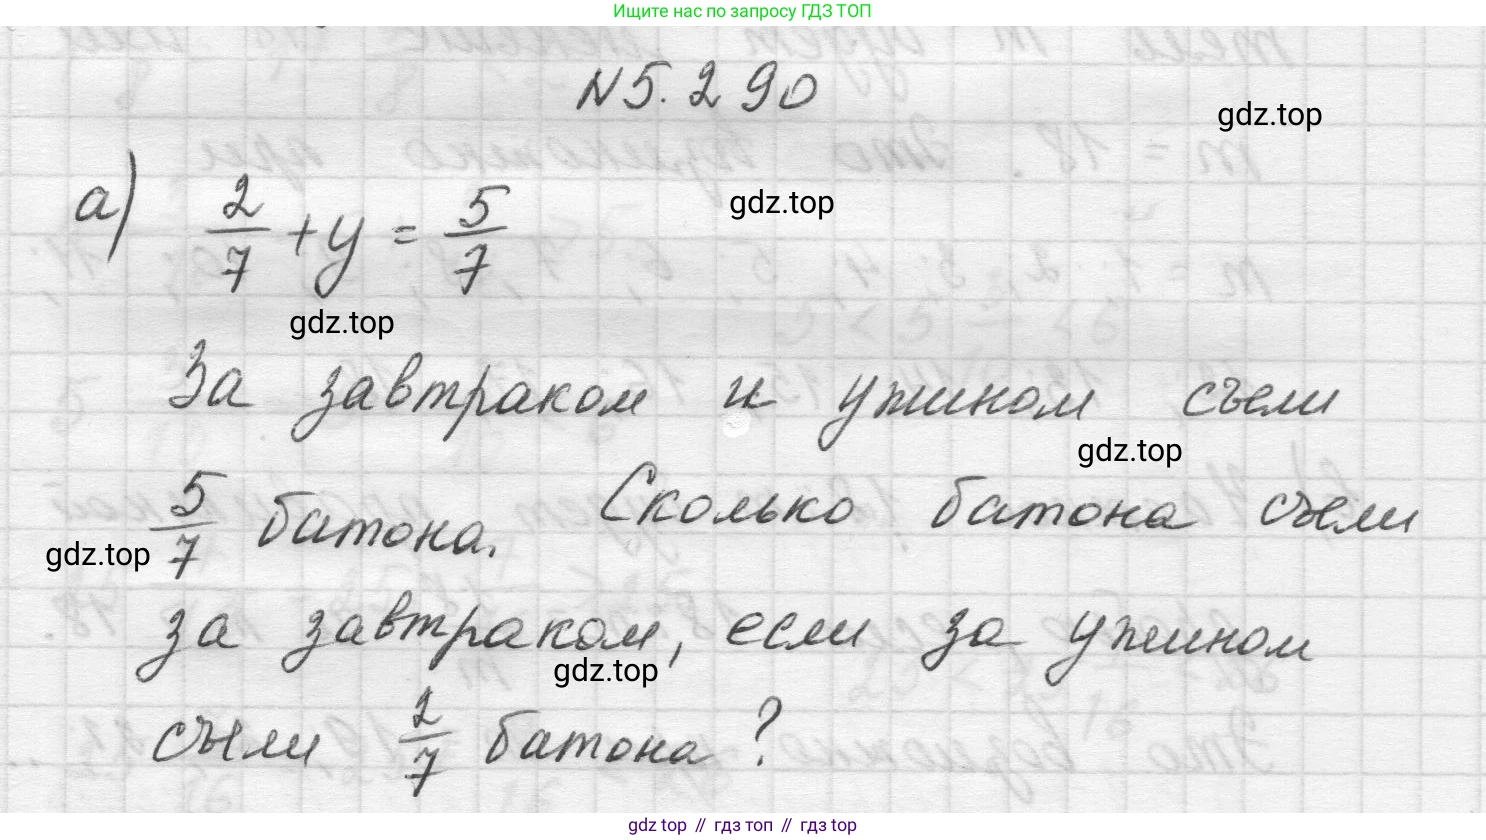 Ищите нас по запросу ГДЗ ТОП
N 5.290
gdz.top
а) 2/7 + y = 5/7
gdz.top
gdz.top
За завтраком и ужином съели
gdz.top
5/7 батона. Сколько батона съели
gdz.top
за завтраком, если за ужином
gdz.top
съели 2/7 батона?
gdz.top // гдз топ // гдз top